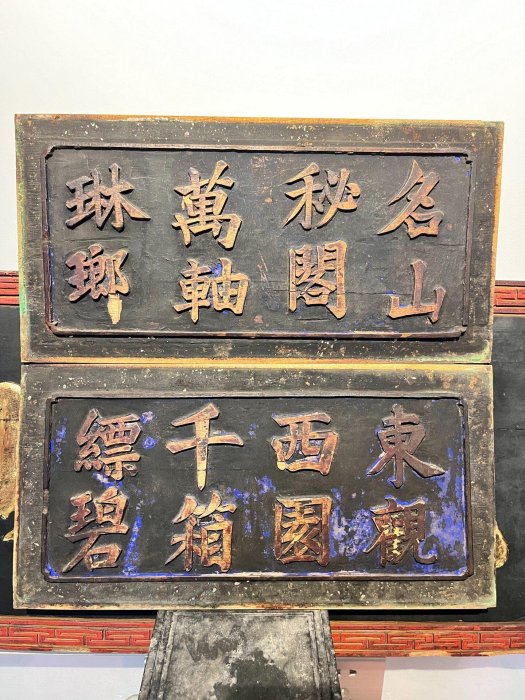 名山
秘閣
萬軸
琳瑯
東觀
西園
千箱
縹碧